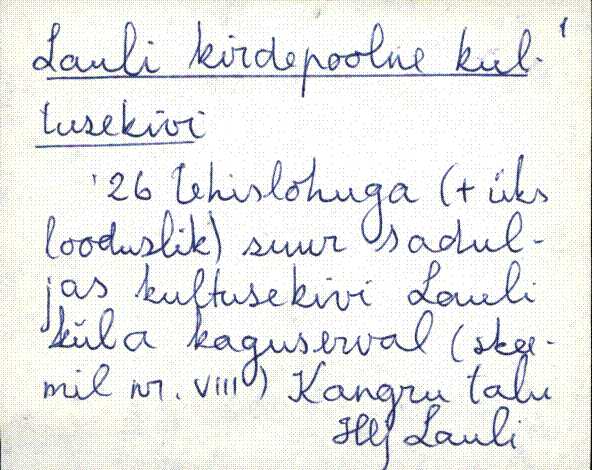 1
Lauli kirdepoolne kul-
tusekivi
26 tehislohuga (+ üks
looduslik) suur sadul-
jas kultusekivi Lauli
küla kaguserval (skee-
mil nr. VIII) Kangru talu
Lauli